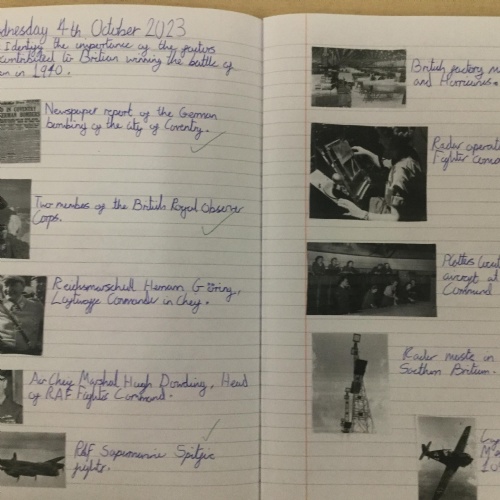 dnesday 4th October 2023
Identify the importance of the factors
contributed to Britian winning the battle of
in 1940.
Newspaper report of the German
bombing of the city of Coventry.
Two members of the British Royal Observer
Corps.
Reichsmarschell Hermann Göring,
Luftwaffe Commander in Chief.
Air Chief Marshal Hugh Dowding, Head
of RAF Fighter Command.
RAF Supermarine Spitfire
fights.
British factory m
and Hurricanes.
Radar operat
Fighter Coma
Plotters
aircraft at
Command
Radar masts in
Southern Britain.